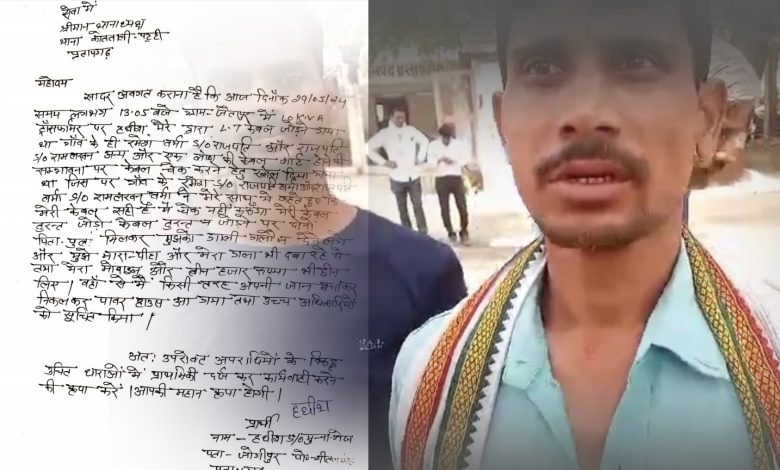 सेवा में
श्रीमान थानाध्यक्ष
थाना कोतवाली पट्टी
प्रतापगढ़
महोदय
सादर अवगत कराना है कि आज दिनाँक 29/05/24
समय लगभग 13:05 बजे ग्राम-जैतापुर में KVA
पर हथीश मेरे द्वारा L.T केबल जोड़ने गया
था गाँव के ही रमेश वर्मा S/O राजपति और राजपति
S/O रामलखन अन्य और एक लोग की केबल
सम्भावना पर केबल चेक करने हेतु खोल दिया गया
था जिस पर गाँव के रमेश S/O राजपति वर्मा राजपति
वर्मा S/O रामलखन वर्मा ने मेरे साथ
मेरी केबल सही है मैं चेक नहीं करूंगा मेरी केबल
तुरन्त जोड़ो केबल तुरन्त न जोड़ने पर दोनों
पिता पुत्र मिलकर मुझको गाली गलौज देने लगे
और मुझे मारा-पीटा और मेरा गला भी दबा रहे थे
तथा मेरा मोबाइल और तीन हजार रूपया भी छीन
लिए। वहाँ से मैं किसी तरह अपनी जान बचाकर
निकलकर पावर हाउस आ गया तथा उच्च अधिकारियों
को सूचित किया।
अतः उपरोक्त अपराधियों के विरुद्ध
उचित धाराओं में प्राथमिकी दर्ज कर कार्यवाही करने
की कृपा करें। आपकी महान कृपा होगी।
हथीश
प्रार्थी
नाम - हथीश S/O
पता - जोगीपुर पो०